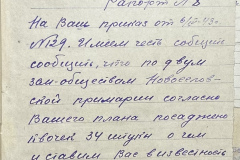 Рапорт №
На Ваш приказ от
№29. Имею честь собщит
сообщить, что по двум
зем-обществам Новоселов-
ской примарии согласно
Вашего плана посаджено
34 штуки о чем
и ставим Вас в известность